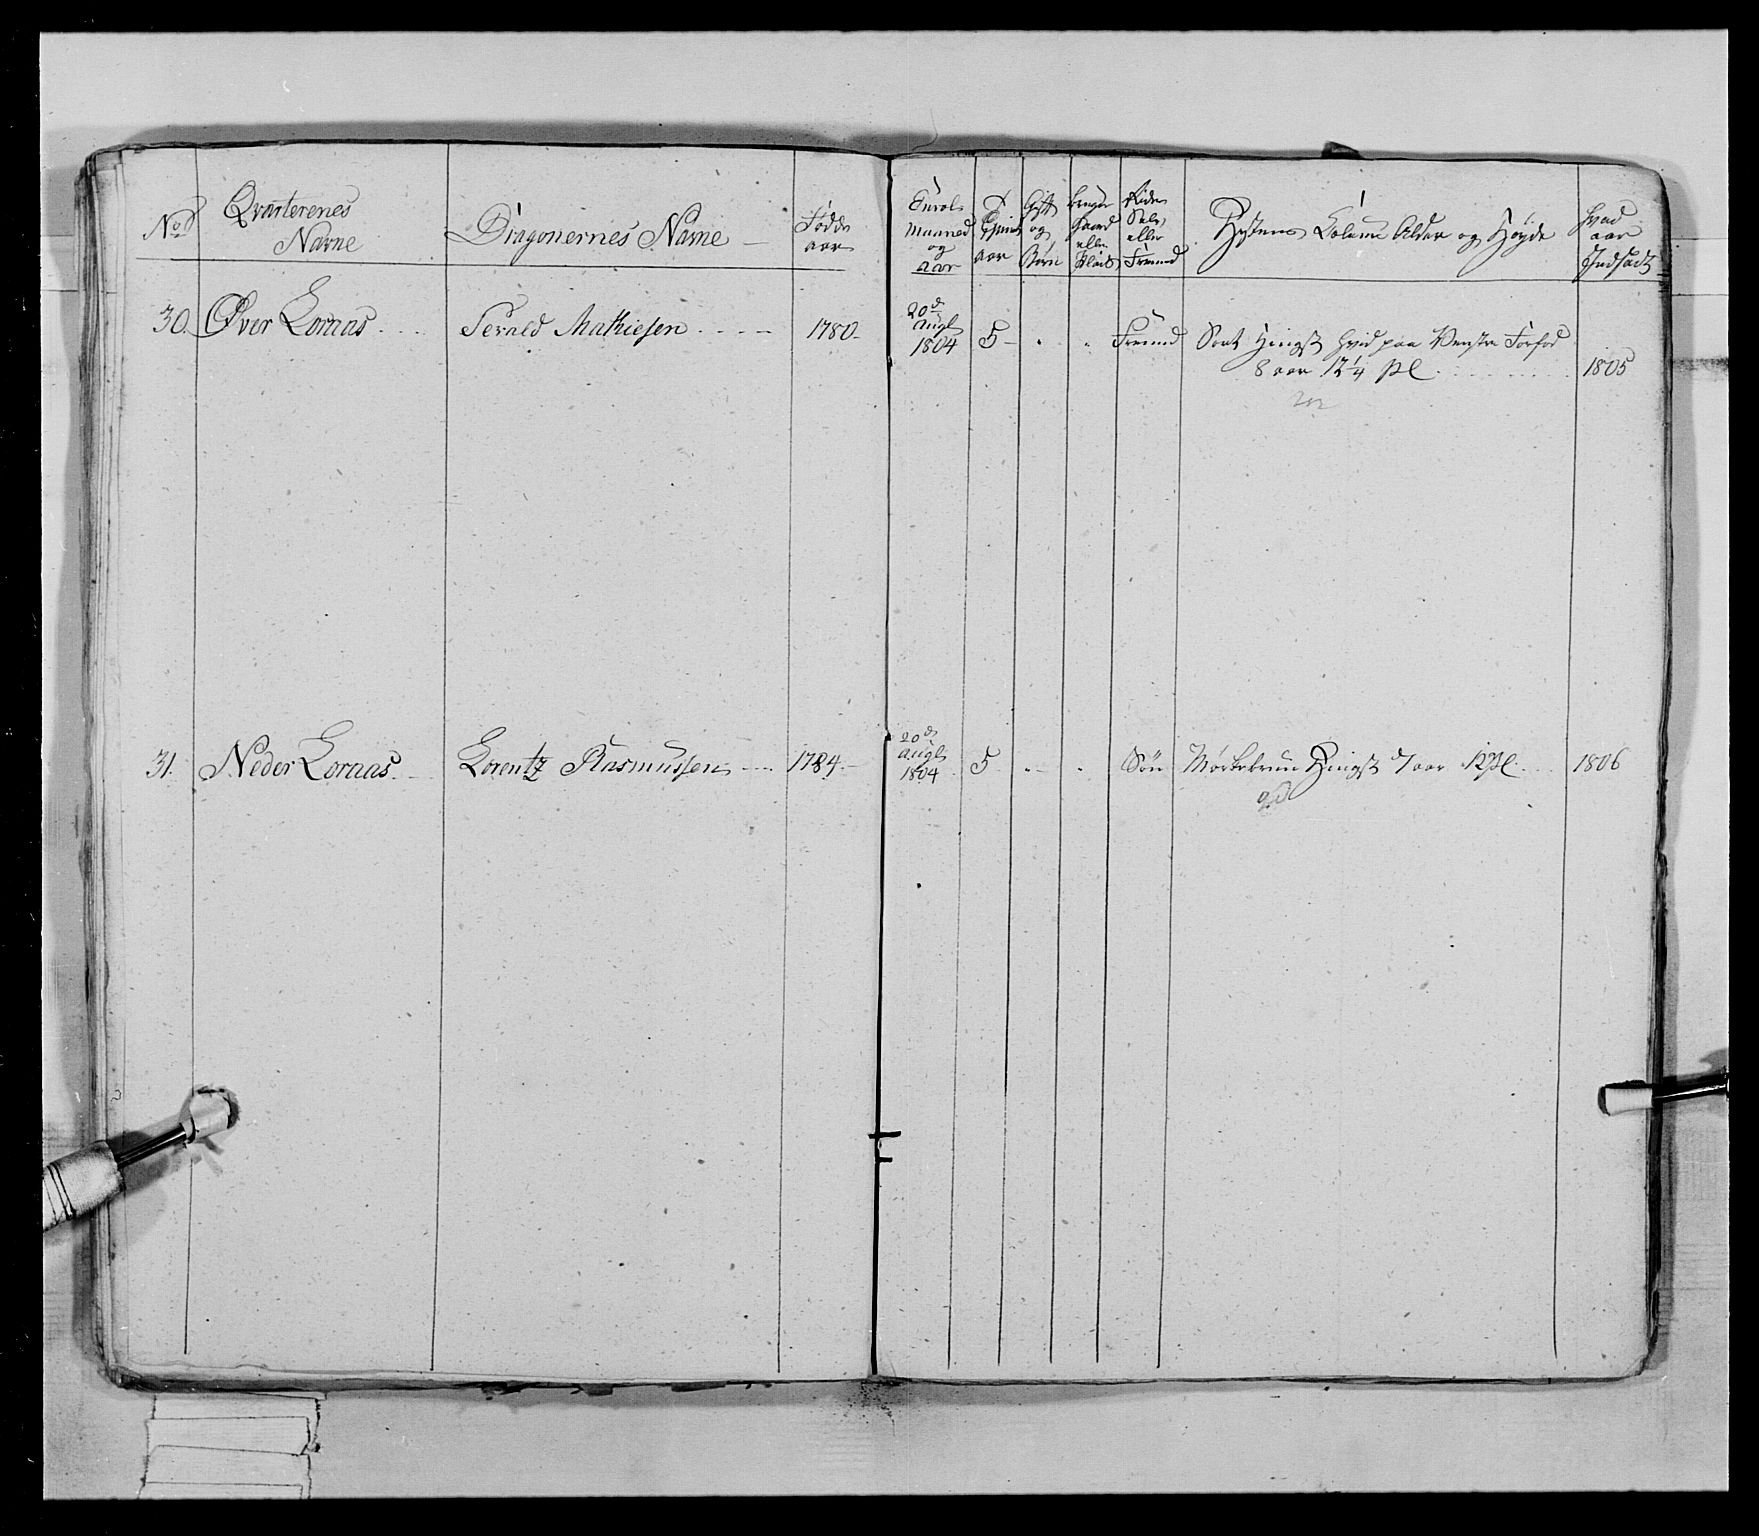 No
Qvarterenes
Navne
Dragonernes Navne
Födde
aar
Enrol.
Maaned
og
aar
Tjenest
aar
Gift
og
Börn
bruger
Gaard
eller
Plads
Rider
Selv
eller
Fremd
Hestens Coleur Alder og Höyde
hvad
aar
Indsadt
30. Øver Lornas Sevald Mathiesen 1780.
20d
Augt
1804 5 " " Fremd Sort Hingst hvid paa Venstre Forfod
8 aar 12 1/4 Ql 1805
31. Neder Lornas. Lorentz Rasmussen 1784.
20d
Augt
1804 5 " " Sön Mörkebrun Hingst 7 aar 12 Ql. 1806